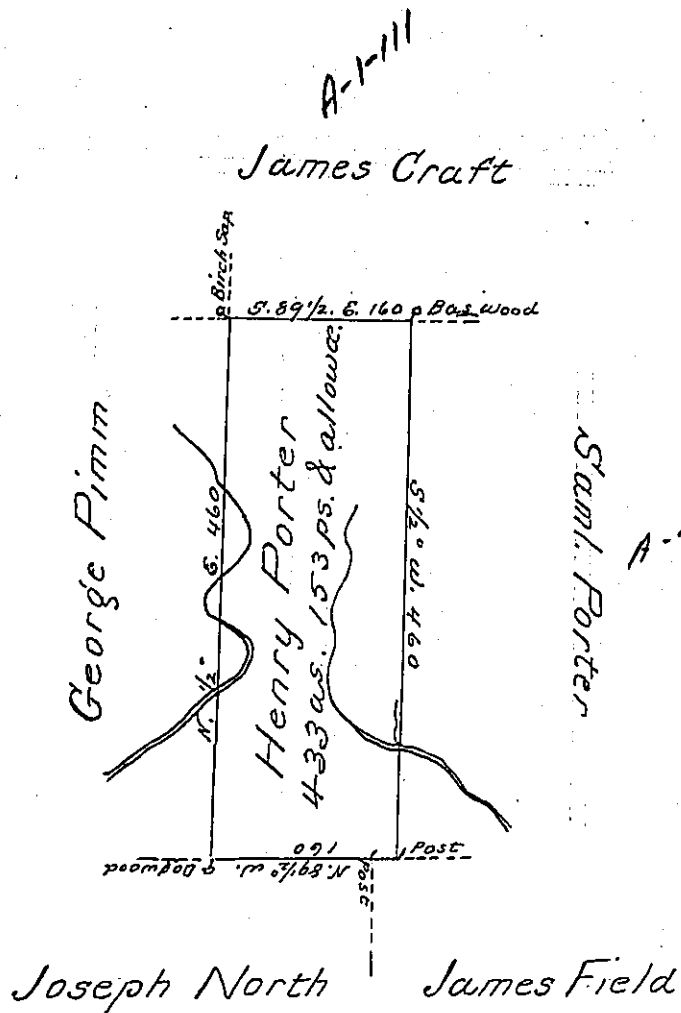 A-1-111
James Craft
Birch Sap.
S. 89 1/2. E. 160
Bas wood
George Pimm
N. 1/2° E. 460
Henry Porter
433 as. 153 ps. & allowce.
S 1/2° W. 460
Saml. Porter
A-
Dogwood
N. 89 1/2° W.
160
Post
Post
Joseph North
James Field